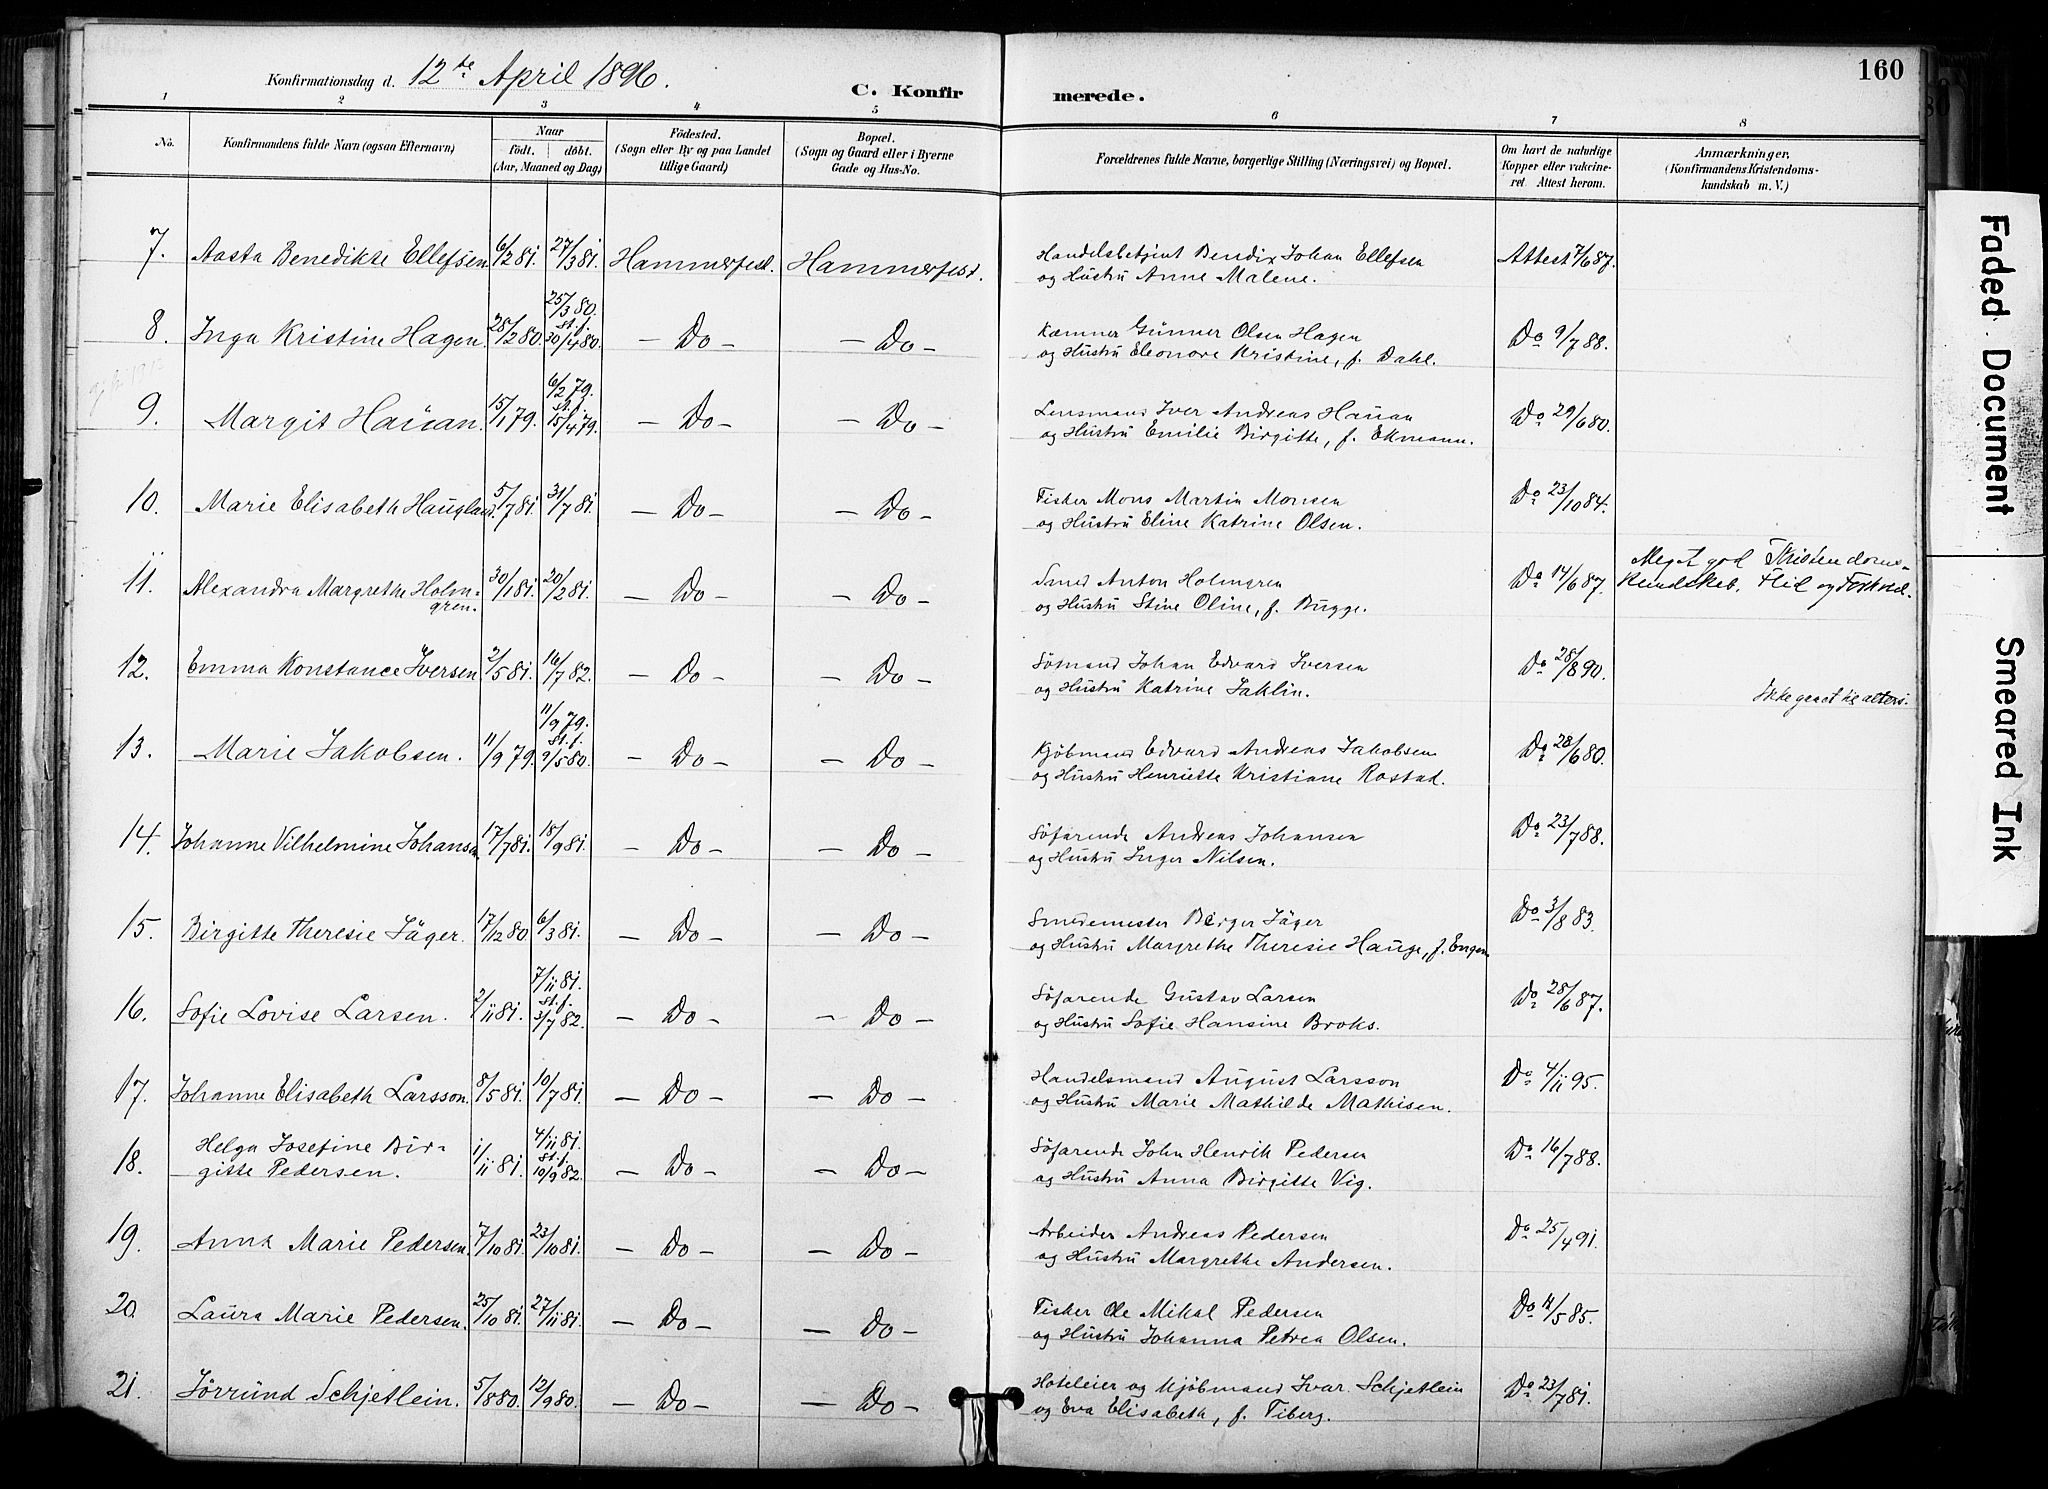 Konfirmationsdag d. 12te April 1896.
C. Konfirmerede.
160
1 2 3 4 5 6 7 8
No. Konfirmandens fulde Navn (ogsaa Efternavn) Naar Födt. döbt. (Aar, Maaned og Dag) Födested. (Sogn eller By og paa Landet tillige Gaard) Bopæl. (Sogn og Gaard eller i Byerne Gade og Hus-No. Forældrenes fulde Navne, borgerlige Stilling (Næringsvei) og Bopæl. Om havt de naturlige Kopper eller vakcineret Attest herom. Anmærkninger. (Konfirmandens Kristendomskundskab m. V.)
7. Aasta Benedikte Ellefsen 6/2 81. 27/3 81. Hammerfest. Hammerfest. Handelsbetjent Bendix Johan Ellefsen Attest 7/6 87.
og Hustru Anne Malene.
8. Inga Kristine Hagen 28/2 80. 25/3 80. st.f. 30/4 80. — Do — — Do — Kæmner Gunner Olsen Hagen Do 9/7 88.
og Hustru Eleonore Kristine, f. Dahl.
9. Margit Hauan. 15/1 79. 6/2 79. st.f. 15/4 79. — Do — — Do — Lensmand Iver Andreas Hauan Do 29/6 80.
og Hustru Emilie Birgitte, f. Ekmann.
10. Marie Elisabeth Haugland. 5/7 81. 31/7 81. — Do — — Do — Fisker Mons Martin Monsen Do 23/10 84.
og Hustru Eline Katrine Olsen.
11. Alexandra Margrethe Holmgren. 30/1 81. 20/2 81. — Do — — Do — Smed Anton Holmgren Do 14/6 87. Meget god Kristendomskundskab. Flid og Forhold.
og Hustru Stine Oline, f. Bugge.
12. Emma Konstance Iversen 2/5 81. 16/7 82. — Do — — Do — Sömand Johan Edvard Iversen Do 28/8 90.
og Hustru Katrine Jaklin. Ikke gaaet til alters.
13. Marie Jakobsen. 11/9 79. 11/9 79. st.f. 9/5 80. — Do — — Do — Kjöbmand Edvard Andreas Jakobsen Do 28/6 80.
og Hustru Henriette Kristiane Rostad.
14. Johanne Vilhelmine Johansen 17/7 81. 18/9 81. — Do — — Do — Söfarende Andreas Johansen Do 23/7 88.
og Hustru Inger Nilsen.
15. Birgitte Theresie Jäger. 17/12 80 6/3 81. — Do — — Do — Smedemester Birger Jäger Do 3/8 83.
og Hustru Margrethe Theresie Hauge, f. Engen
16. Sofie Lovise Larsen. 2/11 81. 7/11 81. st.f. 3/7 82. — Do — — Do — Söfarende Gustav Larsen Do 28/6 87.
og Hustru Sofie Hansine Broks.
17. Johanne Elisabeth Larsson. 8/5 81. 10/7 81. — Do — — Do — Handelsmand August Larsson Do 4/11 95.
og Hustru Marie Mathilde Mathisen.
18. Helga Josefine Birgitte Pedersen. 1/11 81. 4/11 81. st.f. 10/9 82. — Do — — Do — Söfarende John Henrik Pedersen Do 16/7 88.
og Hustru Anna Birgitte Vig.
19. Anna Marie Pedersen. 7/10 81. 23/10 81. — Do — — Do — Arbeider Andreas Pedersen Do 25/4 91.
og Hustru Margrethe Andersen.
20. Laura Marie Pedersen. 25/10 81. 27/11 81. — Do — — Do — Fisker Ole Mikal Pedersen Do 4/5 85.
og Hustru Johanna Petrea Olsen.
21. Jörrund Schjetlein. 5/8 80. 12/9 80. — Do — — Do — Hoteleier og Kjöbmand Ivar Schjetlein Do 23/7 81.
og Eva Elisabeth, f. Fiberg.
Faded Document
Smeared Ink